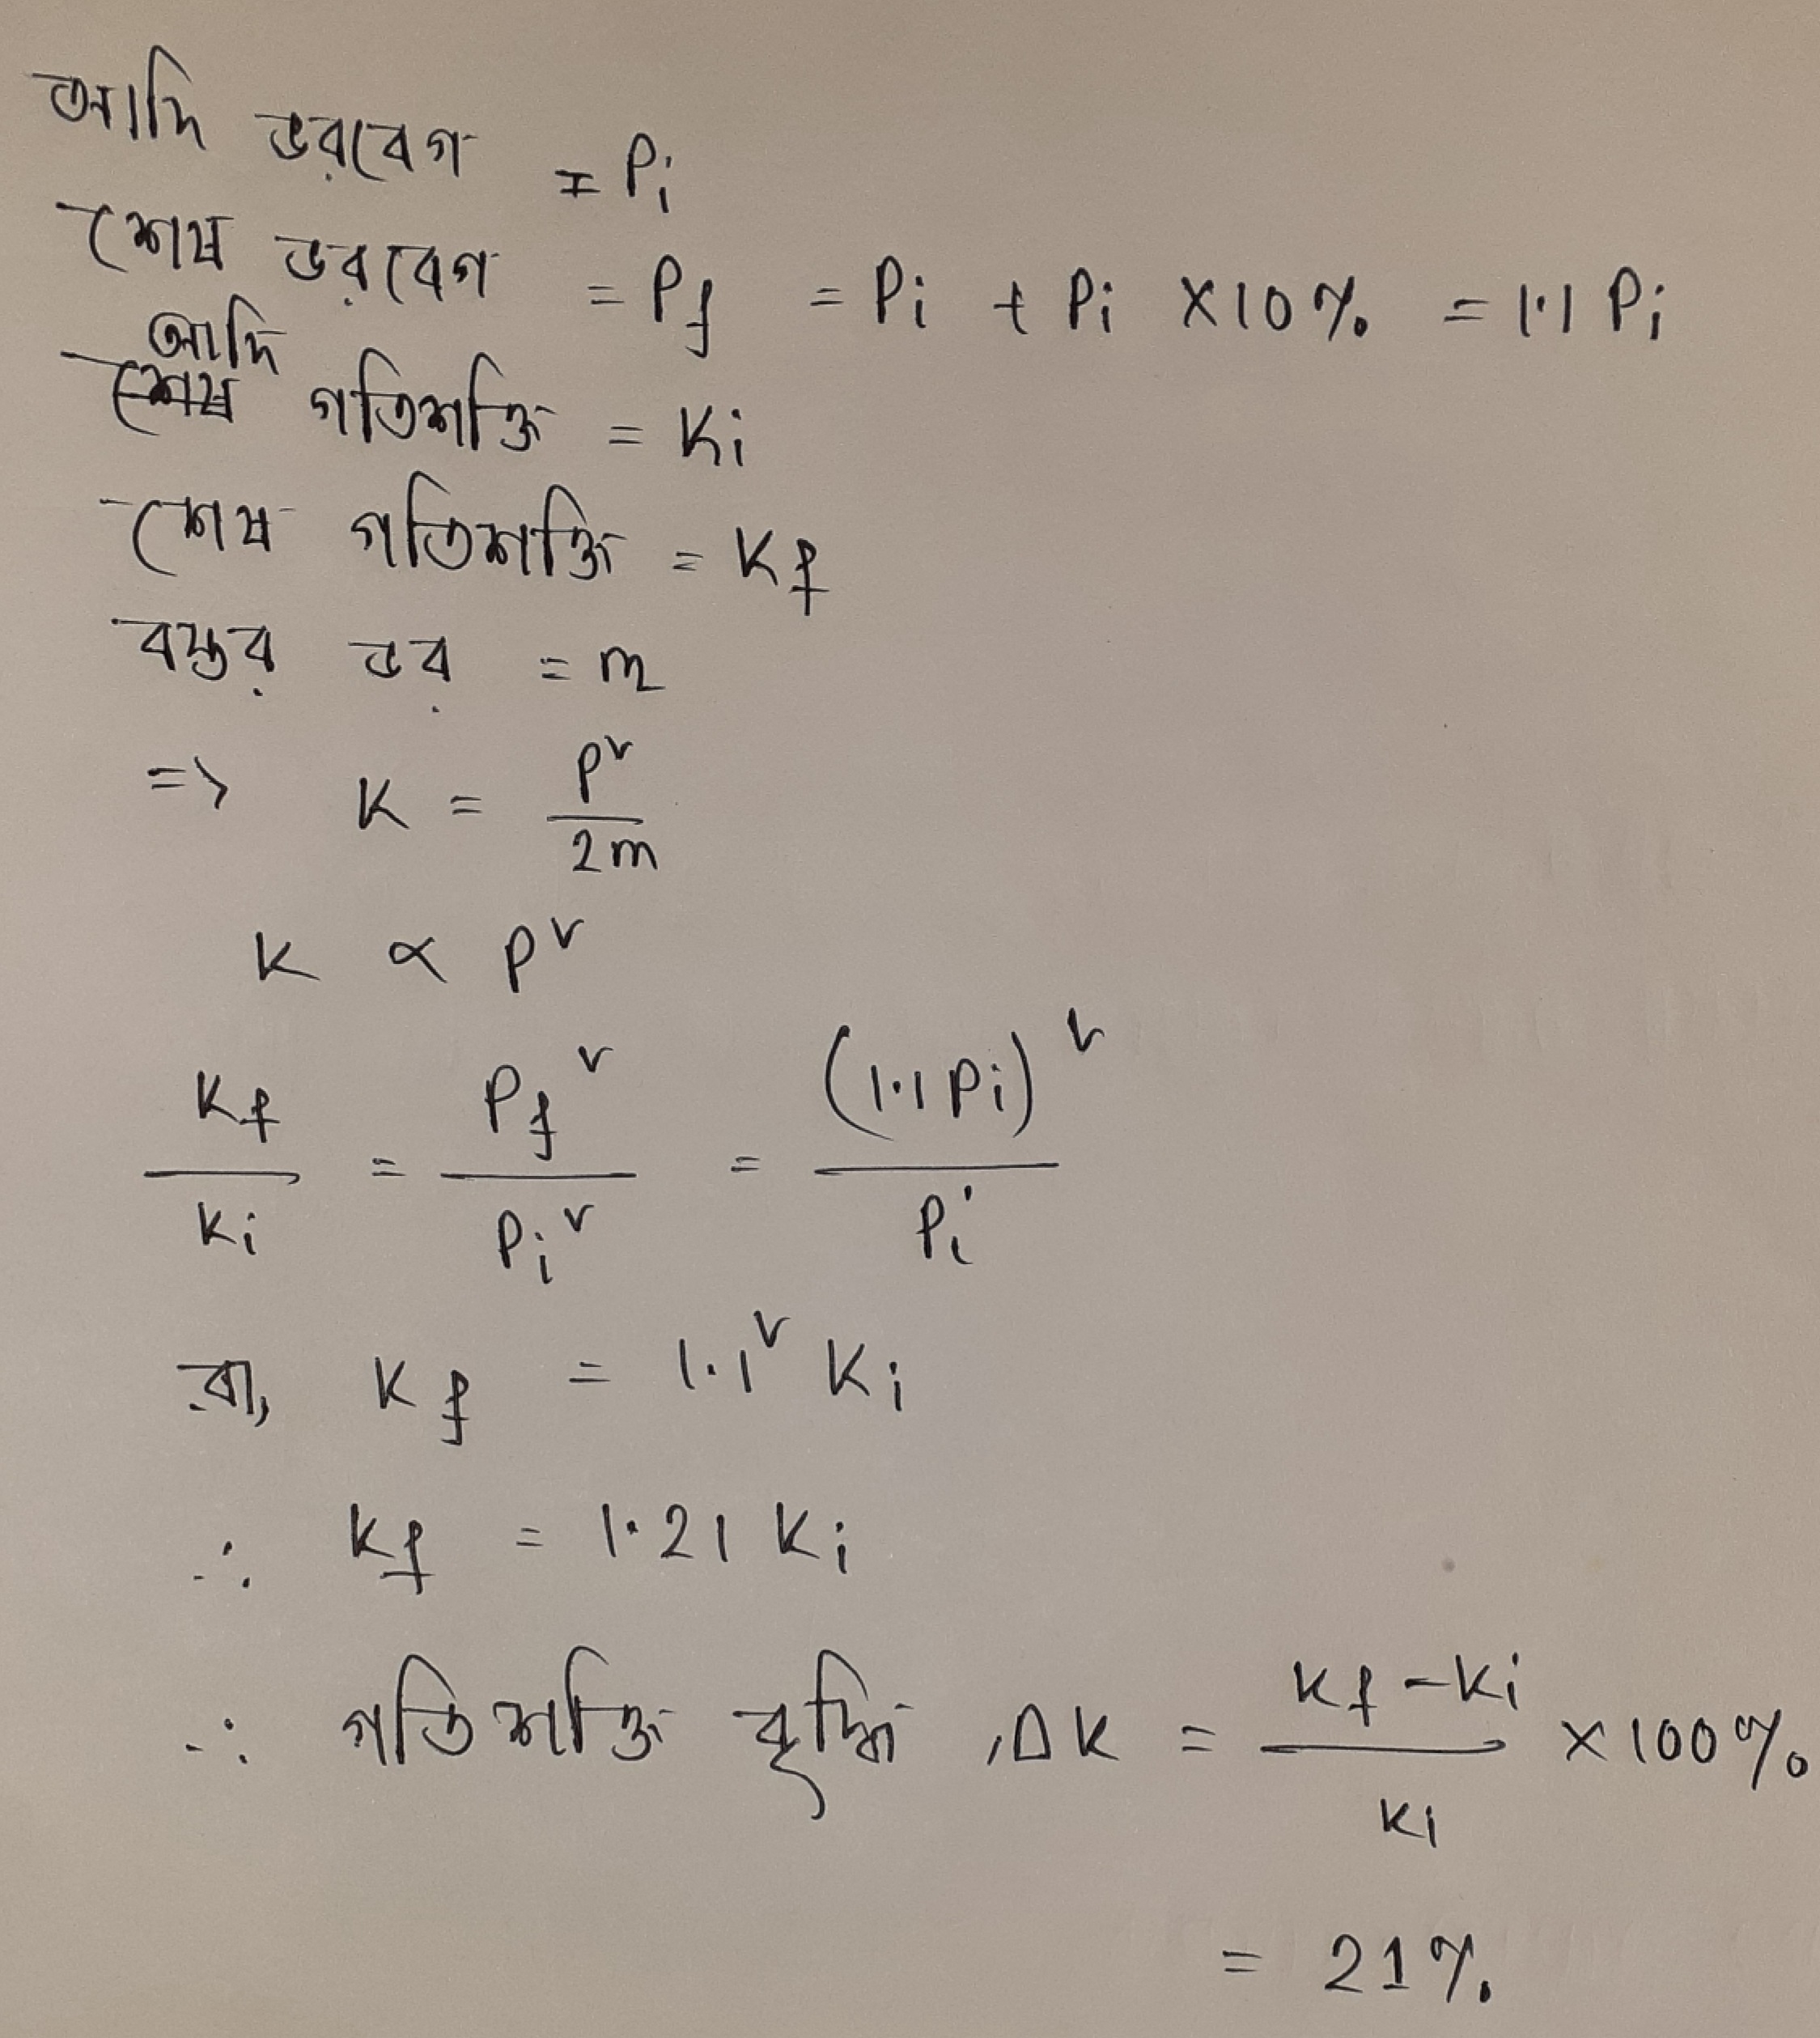 আদি ভরবেগ = Pi
শেষ ভরবেগ = Pf = Pi + Pi ×10% = 1.1 Pi
আদি
শেষ গতিশক্তি = Ki
শেষ গতিশক্তি = Kf
বস্তুর ভর = m
=> K = P² / 2m
K ∝ P²
Kf / Ki = Pf² / Pi² = (1.1 Pi)² / Pi
বা, Kf = 1.1² Ki
∴ Kf = 1.21 Ki
∴ গতিশক্তি বৃদ্ধি, ΔK = Kf - Ki / Ki × 100%
= 21%